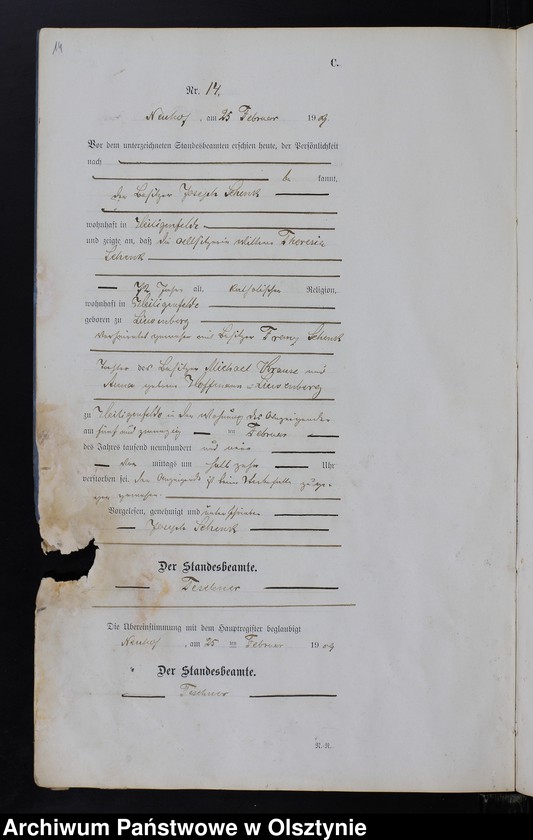 14
C.
Nr. 14.
Neuhof, am 25 Februar 1909.
Vor dem unterzeichneten Standesbeamten erschien heute, der Persönlichkeit
nach
be kannt,
der Besitzer Joseph Schenk
wohnhaft in Heiligenfelde
und zeigte an, daß die Altsitzerin Wittwe Theresia
Schenk
72 Jahre alt, katholischer Religion,
wohnhaft in Heiligenfelde
geboren zu
verheiratet gewesen mit Besitzer Franz Schenk
Tochter des Besitzer Michael Krause und
Anna geborne Hoffmann
zu Heiligenfelde in der Wohnung des Anzeigenden
am fünf und zwanzig ten Februar
des Jahres tausend neunhundert und neun
mittags um halb zehn Uhr
verstorben sei. Der Anzeigende ist beim Sterbefalle zuge-
gen gewesen.
Vorgelesen, genehmigt und unterschrieben
Joseph Schenk
Der Standesbeamte.
Teschner
Die Übereinstimmung mit dem Hauptregister beglaubigt
Neuhof, am 25 ten Februar 1909
Der Standesbeamte.
Teschner
N.-R.
Archiwum Państwowe w Olsztynie